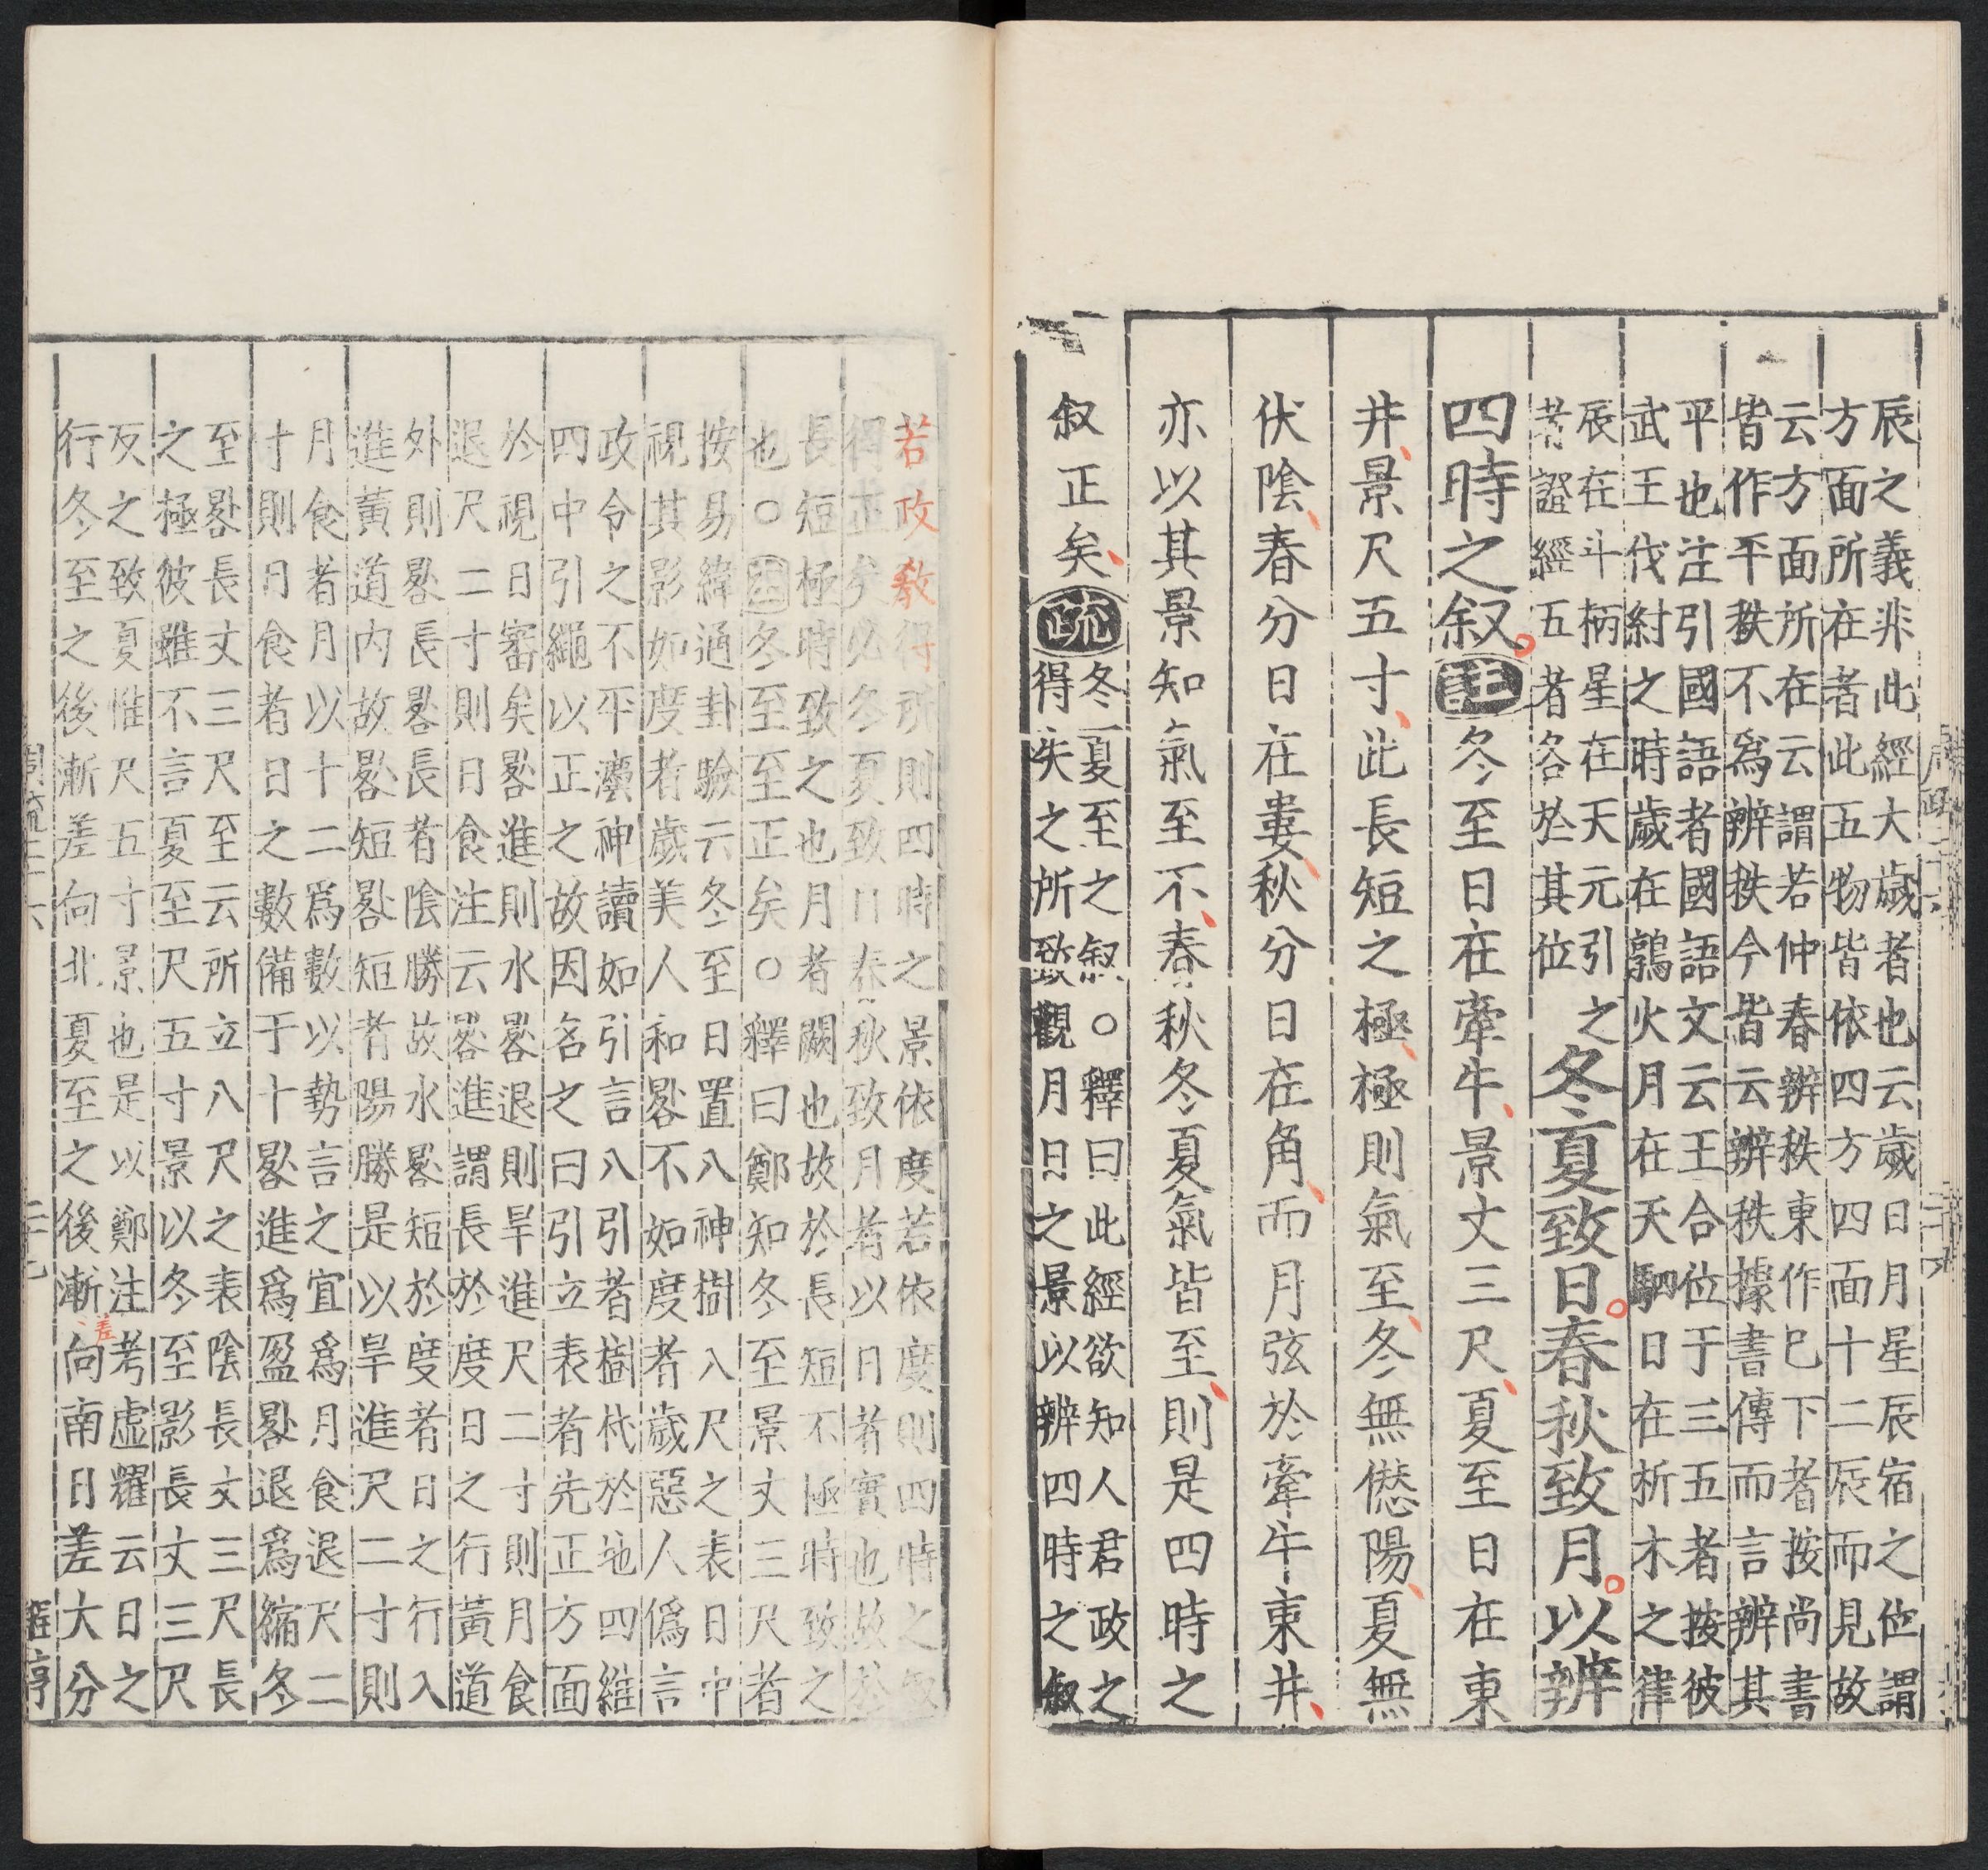 辰之義非此經大歲者也云歲日月星辰宿之位謂
方面所在者此五物皆依四方四面十二辰而見故
云方面所在云謂若仲春辨秩東作巳下者按尚書
皆作平秩不爲辨秩今皆云辨秩據書傳而言辨其
平也注引國語者國語文云王合位于三五者按彼
武王伐紂之時歲在鶉火月在天駟日在析木之律
辰在斗柄星在天元引之
者證經五者各於其位
冬夏致日春秋致月以辨
四時之叙註冬至日在牽牛景丈三尺夏至日在東
井景尺五寸此長短之極極則氣至冬無愆陽夏無
伏陰春分日在婁秋分日在角而月弦於牽牛東井
亦以其景知氣至不春秋冬夏氣皆至則是四時之
叙正矣疏
冬夏至之叙○釋曰此經欲知人君政之
得失之所致觀月日之景以辨四時之叙
若政教得所則四時之景依度若依度則四時之叙
得正矣必冬夏致日春秋致月者以日者實也故於
長短極時致之也月者闕也故於長短不極時致之
也○註冬至至正矣○釋曰鄭知冬至景丈三尺者
按易緯通卦驗云冬至日置八神樹八尺之表日中
視其影如度者歲美人和晷不如度者歲惡人僞言
政令之不平神讀如引言八引者樹杙於地四維
四中引繩以正之故因名之曰引立表者先正方面
於視日審矣晷進則水晷退則旱進尺二寸則月食
退尺二寸則日食注云晷進謂長於度日之行黃道
外則晷長晷長者陰勝故水晷短於度者日之行入
進黃道内故晷短晷短者陽勝是以旱進尺二寸則
月食者月以十二爲數以勢言之宜爲月食退尺二
寸則日食者日之數備于十晷進爲盈晷退爲縮冬
至晷長丈三尺至云所立八尺之表陰長丈三尺長
之極彼雖不言夏至尺五寸景以冬至影長丈三尺
反之致夏惟尺五寸景也是以鄭注考虛耀云日之
行冬至之後漸差向北夏至之後漸向南日差大分
差